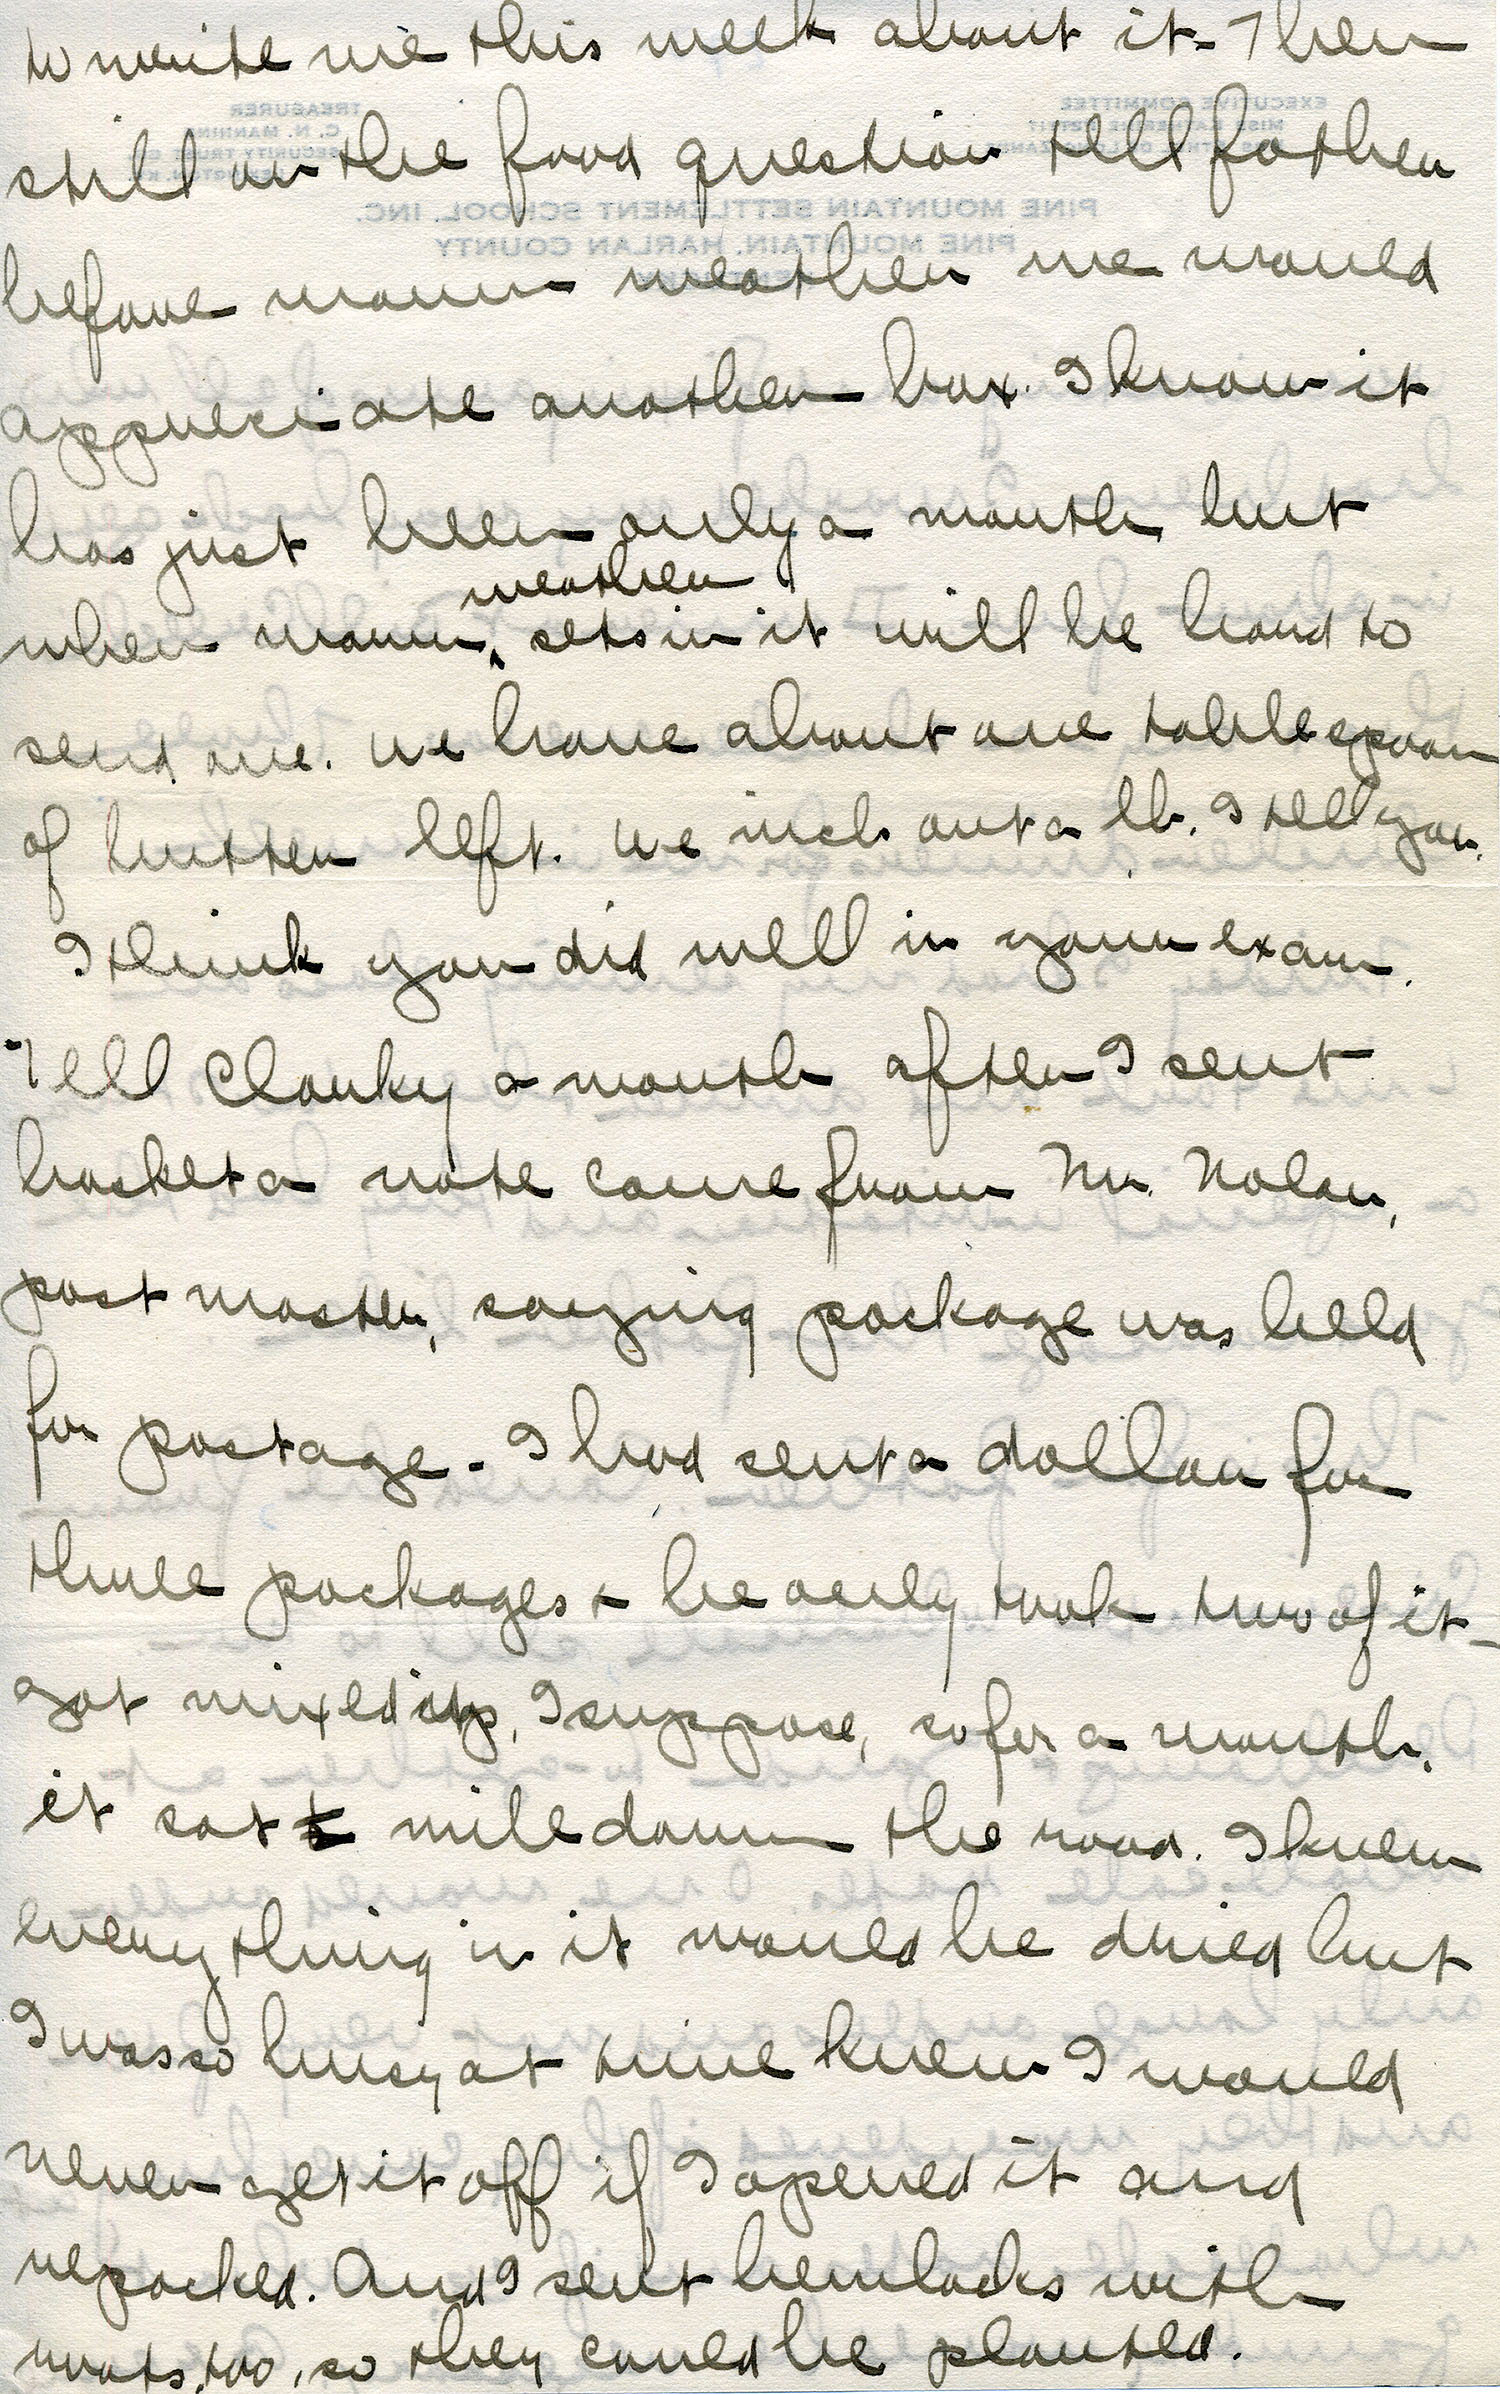 to write me this week about it. Then
still on the food question tell father
before warm weather we would
appreciate another box. I know it
has just been only a month but
weather
when warm ‸ sets in it will be hard to
send one. We have about one tablespoon
of butter left. We inch out a lb. I tell you.
I think you did well in your exam.
Tell Clarky a month after I sent
basket a note came from Mr. Nolan,
post master, saying package was held
for postage - I had sent a dollar for
three packages & he only took two of it -
got mixed up, I suppose, so for a month,
it sat mile down the road. I knew
everything in it would be dried but
I was so busy at time knew I would
never get it off if I opened it and
repacked. And I sent hemlocks with
roots, too, so they could be planted.
EXECUTIVE COMMITTEE
TREASURER
C. N. MANNING
SECURITY TRUST CO.
PINE MOUNTAIN SETTLEMENT SCHOOL, INC.
PINE MOUNTAIN, HARLAN COUNTY